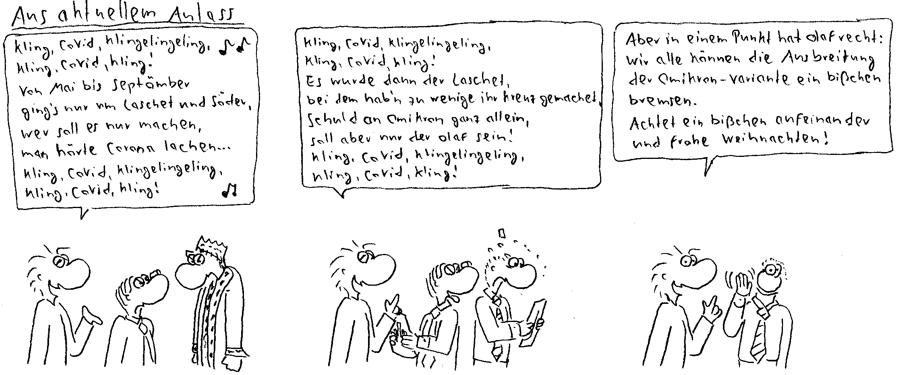 Aus aktuellem Anlass
Kling, Covid, Klingelingeling,
Kling, Covid, kling!
Von Mai bis Septämber
ging's nur um Laschet und Söder,
wer soll es nur machen,
man hörte Corona lachen...
Kling, Covid, Klingelingeling,
Kling, Covid, kling!
Kling, Covid, Klingelingeling,
Kling, Covid, kling!
Es wurde dann der Laschet,
bei dem hab'n zu wenige ihr Kreuz gemachet.
Schuld an Omikron ganz allein,
soll aber nur der Olaf sein!
Kling, Covid, Klingelingeling,
Kling, Covid, kling!
Aber in einem Punkt hat Olaf recht:
wir alle können die Ausbreitung
der Omikron-Variante ein bißchen
bremsen.
Achtet ein bißchen aufeinander
und frohe Weihnachten!